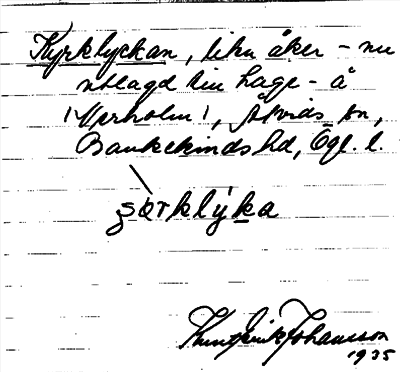 Kyrklyckan, liten åker – nu
utlagd till hage – å
Värholm, Åtvids sn,
Bankekinds hd, Ögl. l.
çorklýka
Knut Erik Johansson
1935